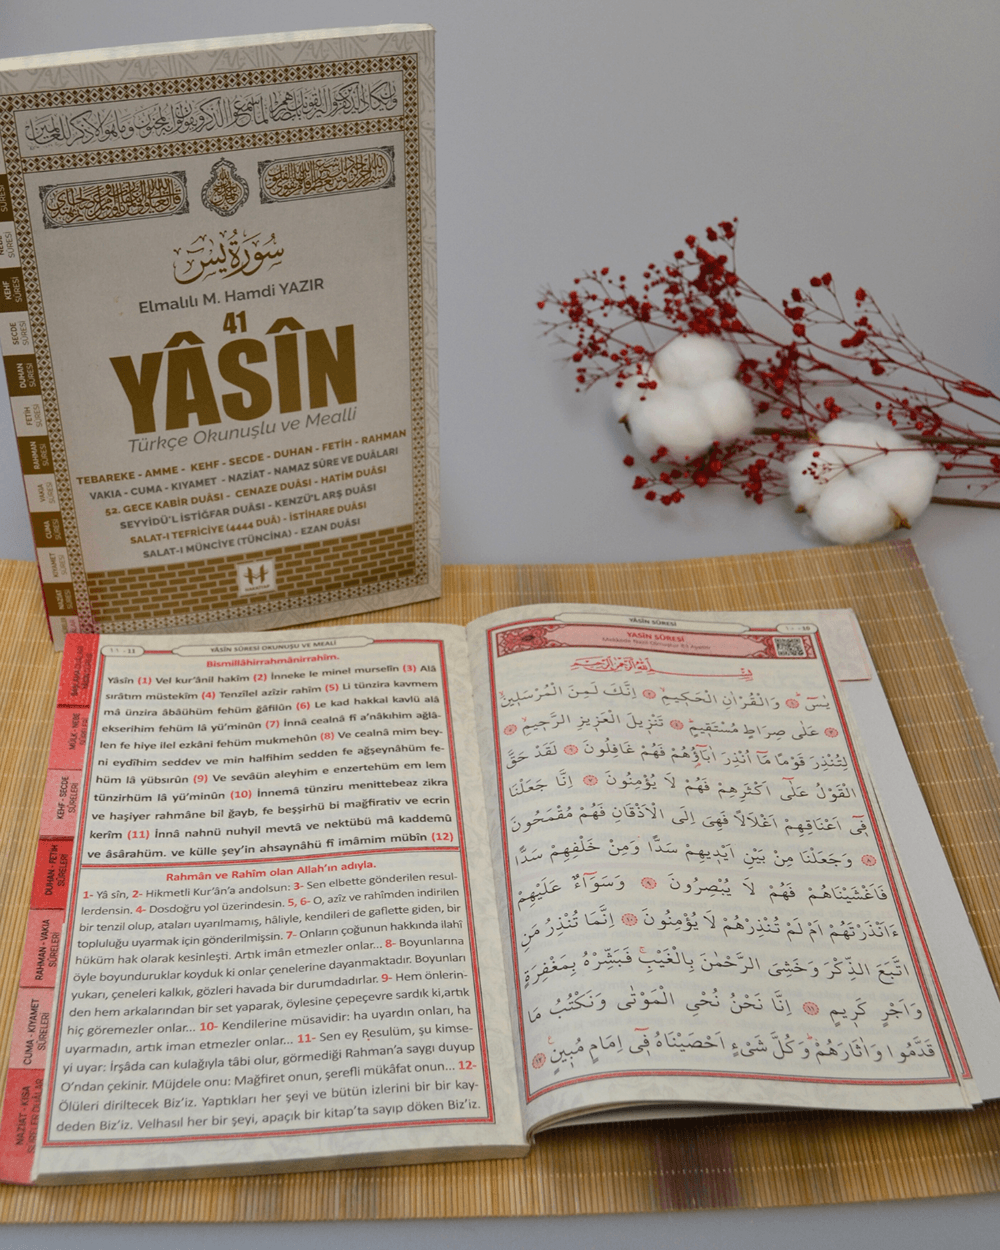 سُورَةُ يٰسٓ
Elmalılı M. Hamdi YAZIR
41
YÂSÎN
Türkçe Okunuşlu ve Mealli
TEBAREKE - AMME - KEHF - SECDE - DUHAN - FETİH - RAHMAN
VAKIA - CUMA - KIYAMET - NAZİAT - NAMAZ SÛRE VE DUÂLARI
52. GECE KABİR DUÂSI - CENAZE DUÂSI - HATİM DUÂSI
SEYYİDÜ'L İSTİĞFAR DUÂSI - KENZÜ'L ARŞ DUÂSI
SALAT-I TEFRİCİYE (4444 DUÂ) - İSTİHARE DUÂSI
SALAT-I MÜNCİYE (TÜNCİNA) - EZAN DUÂSI
KEHF SÛRESİ
SECDE SÛRESİ
DUHAN SÛRESİ
FETİH SÛRESİ
RAHMAN SÛRESİ
VAKIA SÛRESİ
CUMA SÛRESİ
KIYAMET SÛRESİ
NAZİAT SÛRESİ
11
YÂSÎN SÛRESİ OKUNUŞU VE MEALİ
Bismillâhirrahmânirrahîm.
Yâsîn (1) Vel kur'ânil hakîm (2) İnneke le minel murselîn (3) Alâ
sırâtım müstekîm (4) Tenzîlel azîzir rahîm (5) Li tünzira kavmem
mâ ünzira âbâühüm fehüm ğâfilûn (6) Le kad hakkal kavlü alâ
ekserihim fehüm lâ yü'minûn (7) İnnâ cealnâ fî a'nâkıhim ağlâ-
len fe hiye ilel ezkâni fehüm mukmehûn (8) Ve cealnâ mim bey-
ni eydîhim seddev ve min halfihim sedden fe ağşeynâhüm fe-
hüm lâ yübsırûn (9) Ve sevâün aleyhim e enzertehüm em lem
tünzirhüm lâ yü'minûn (10) İnnemâ tünziru menittebeaz zikra
ve haşiyer rahmâne bil ğayb, fe beşşirhü bi mağfirativ ve ecrin
kerîm (11) İnnâ nahnü nuhyil mevtâ ve nektübü mâ kaddemû
ve âsârahüm. ve külle şey'in ahsaynâhü fî imâmim mübîn (12)
Rahmân ve Rahîm olan Allah'ın adıyla.
1- Yâ sîn, 2- Hikmetli Kur'ân'a andolsun: 3- Sen elbette gönderilen resul-
lerdensin. 4- Dosdoğru yol üzerindesin. 5, 6- O, azîz ve rahîmden indirilen
bir tenzil olup, ataları uyarılmamış, hâliyle, kendileri de gaflette giden, bir
topluluğu uyarmak için gönderilmişsin. 7- Onların çoğunun hakkında ilahî
hüküm hak olarak kesinleşti. Artık iman etmezler onlar... 8- Boyunlarına
öyle boyunduruklar koyduk ki onlar çenelerine dayanmaktadır. Boyunları
yukarı, çeneleri kalkık, gözleri havada bir durumdadırlar. 9- Hem önlerin-
den hem arkalarından bir set yaparak, öylesine çepeçevre sardık ki,artık
hiç göremezler onlar... 10- Kendilerine müsavidir: ha uyardın onları, ha
uyarmadın, artık iman etmezler onlar... 11- Sen ey Resulüm, şu kimse-
yi uyar: İrşâda can kulağıyla tâbi olur, görmediği Rahman'a saygı duyup
O'ndan çekinir. Müjdele onu: Mağfiret onun, şerefli mükâfat onun... 12-
Ölüleri diriltecek Biz'iz. Yaptıkları her şeyi ve bütün izlerini bir bir kay-
deden Biz'iz. Velhasıl her bir şeyi, apaçık bir kitap'ta sayıp döken Biz'iz.
MÜLK - NEBE SÛRELERİ
KEHF - SECDE SÛRELERİ
DUHAN - FETİH SÛRELERİ
RAHMAN - VAKIA SÛRELERİ
CUMA - KIYAMET SÛRELERİ
NAZİAT - KISA
YÂSÎN SÛRESİ
10
YASİN SÛRESİ
بِسْمِ اللّٰهِ الرَّحْمٰنِ الرَّحٖيمِ
يٰسٓ وَالْقُرْاٰنِ الْحَكٖيمِ اِنَّكَ لَمِنَ الْمُرْسَلٖينَ
عَلٰى صِرَاطٍ مُسْتَقٖيمٍ تَنْزٖيلَ الْعَزٖيزِ الرَّحٖيمِ
لِتُنْذِرَ قَوْمًا مَٓا اُنْذِرَ اٰبَٓاؤُهُمْ فَهُمْ غَافِلُونَ لَقَدْ حَقَّ
الْقَوْلُ عَلٰٓى اَكْثَرِهِمْ فَهُمْ لَا يُؤْمِنُونَ اِنَّا جَعَلْنَا
فٖٓى اَعْنَاقِهِمْ اَغْلَالًا فَهِىَ اِلَى الْاَذْقَانِ فَهُمْ مُقْمَحُونَ
وَجَعَلْنَا مِنْ بَيْنِ اَيْدٖيهِمْ سَدًّا وَمِنْ خَلْفِهِمْ سَدًّا
فَاَغْشَيْنَاهُمْ فَهُمْ لَا يُبْصِرُونَ وَسَوَٓاءٌ عَلَيْهِمْ
ءَاَنْذَرْتَهُمْ اَمْ لَمْ تُنْذِرْهُمْ لَا يُؤْمِنُونَ اِنَّمَا تُنْذِرُ مَنِ
اتَّبَعَ الذِّكْرَ وَخَشِىَ الرَّحْمٰنَ بِالْغَيْبِ فَبَشِّرْهُ بِمَغْفِرَةٍ
وَاَجْرٍ كَرٖيمٍ اِنَّا نَحْنُ نُحْيِى الْمَوْتٰى وَنَكْتُبُ مَا
قَدَّمُوا وَاٰثَارَهُمْ وَكُلَّ شَىْءٍ اَحْصَيْنَاهُ فٖٓى اِمَامٍ مُبٖينٍ